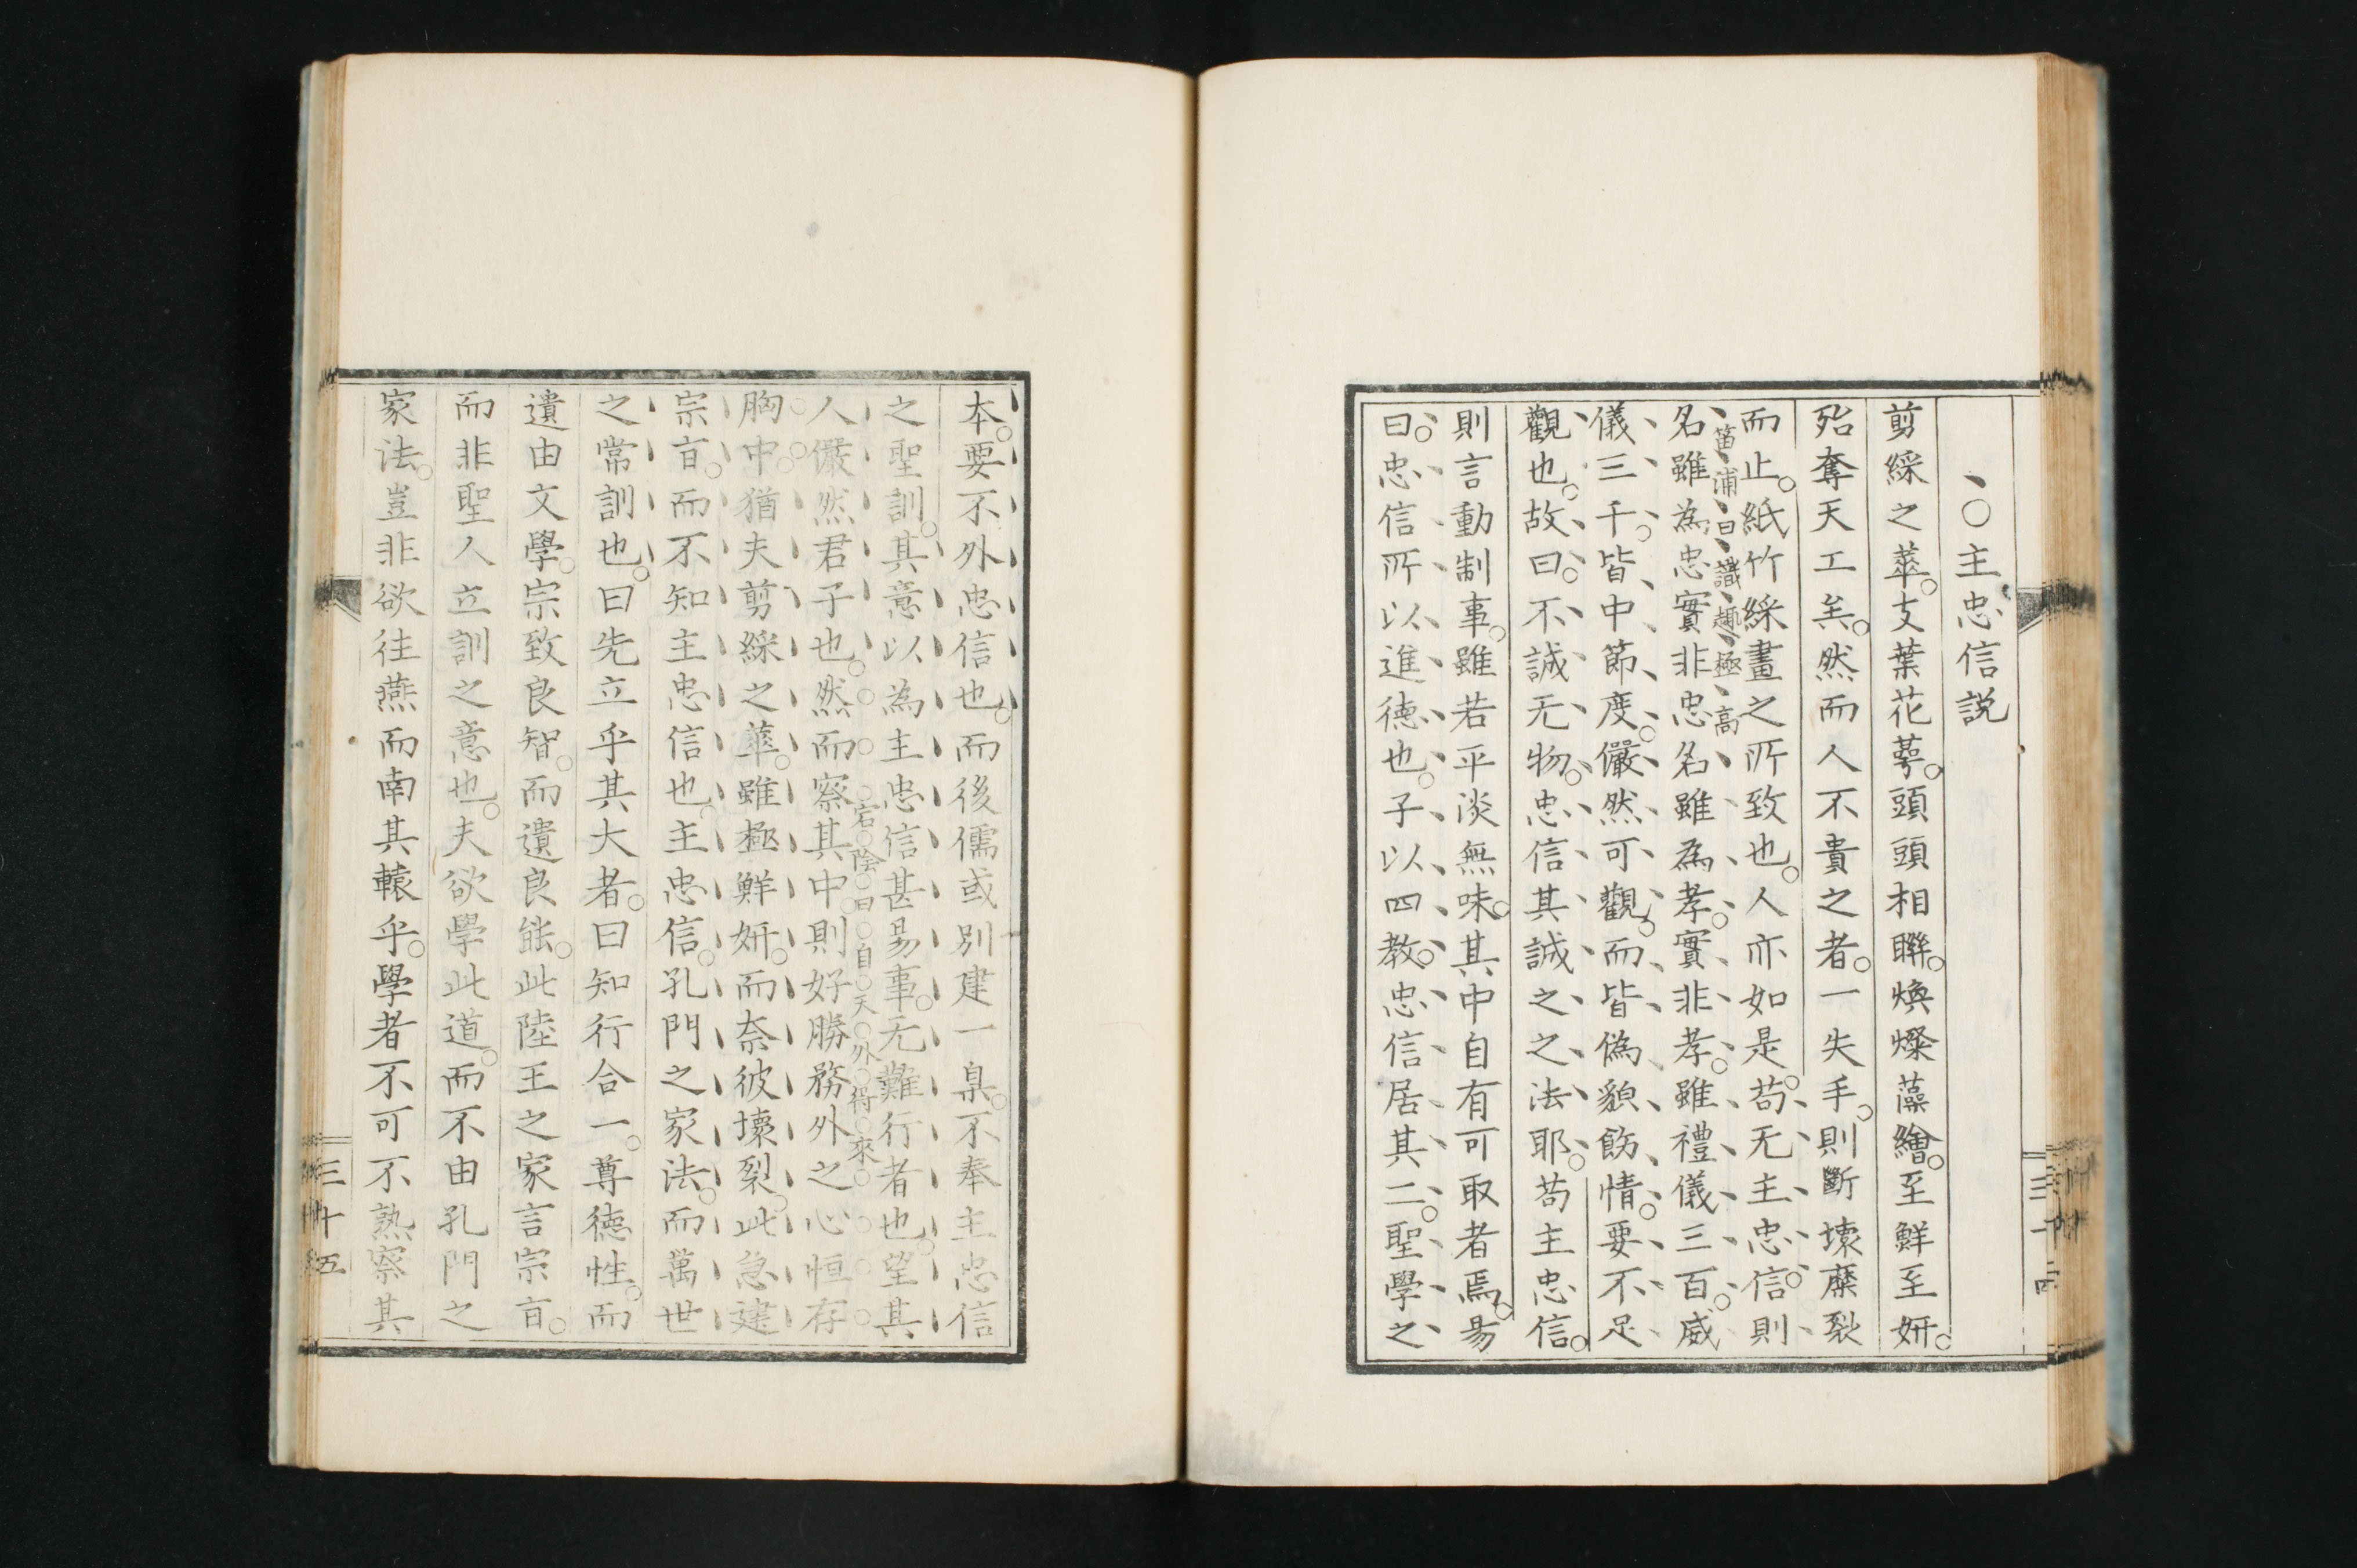 〇主忠信說
剪綵之華。支葉花萼。頭頭相聯。煥燦藻繪。至鮮至姸。
殆奪天工矣。然而人不貴之者。一失手。則斷壞糜裂
而止。紙竹綵畫之所致也。人亦如是。苟无主忠信。則
笛浦曰識趣極高
名雖為忠實非忠名雖為孝。實非孝。雖禮儀三百。威
儀三千。皆中節度。儼然可觀。而皆偽貌飭情。要不足
觀也。故曰。不誠无物。忠信其誠之之法耶。苟主忠信。
則言動制事。雖若平淡無味。其中自有可取者焉。易
曰。忠信所以進德也。子以四教。忠信居其二。聖學之
三十四
本。要不外忠信也。而後儒或別建一臬。不奉主忠信
之聖訓。其意以為主忠信甚易事。无難行者也。望其
宕陰曰自天外得來
人儼然君子也。然而察其中。則好勝務外之心恒存
胸中。猶夫剪綵之華。雖極鮮姸。而奈彼壞裂。此急建
宗旨。而不知主忠信也。主忠信。孔門之家法。而萬世
之常訓也。曰先立乎其大者。曰知行合一。尊德性。而
遺由文學。宗致良智。而遺良能。此陸王之家言宗旨。
而非聖人立訓之意也。夫欲學此道。而不由孔門之
家法。豈非欲往燕而南其轅乎。學者不可不熟察其
三十五